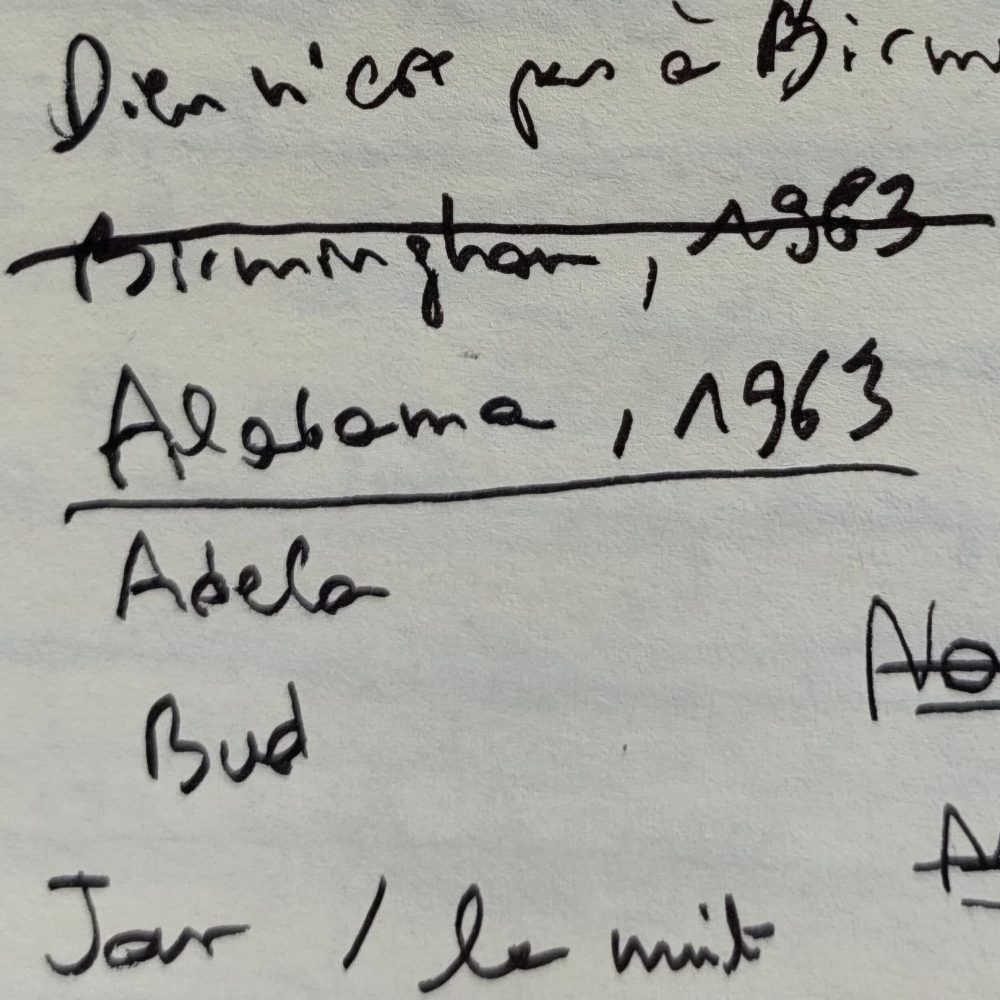 Dieu n'est pas à Birm
Birmingham, 1963
Alabama, 1963
Adela
Bud
No
Jour / la nuit